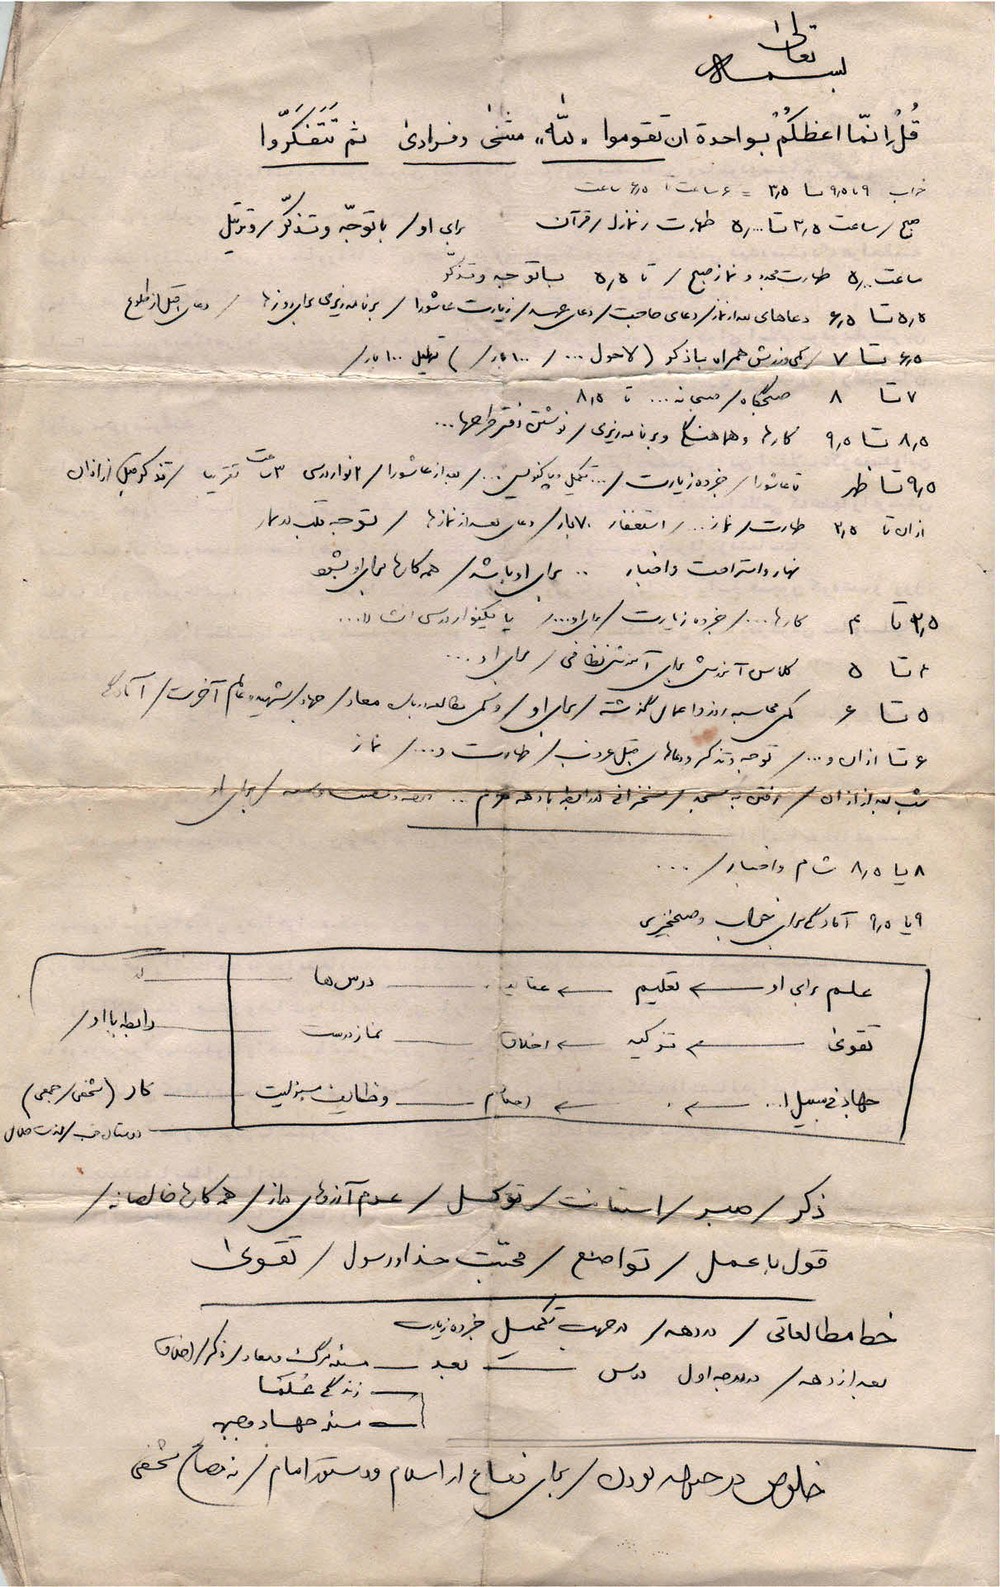 بسمه تعالی
قُلْ اِنّما اعظکُمْ بواحدة ان تقوموا «لِلّه» مثنیٰ و فرادیٰ ثم تَتَفَکّروا
خواب ۹ یا ۹٫۵ تا ۳٫۵ = ۶ ساعت تا ۶٫۵ ساعت
صبح / ساعت ۳٫۵ تا ۵٫۰۰ طهارت / نماز / قرآن برای او / با توجّه و تذکّر / و ترتیل
ساعت ۵٫۰۰ طهارت مجدد و نماز صبح / تا ۵٫۵ با توجه و تذکّر
۵٫۵ تا ۶٫۵ دعاهای بعد از نماز / دعای صاحبت / دعای عهد / زیارت عاشورا / برنامه ریزی برای روزها / دعای قبل از طلوع
۶٫۵ تا ۷ / کمی ورزش همراه با ذکر (لا حول ... / ۱۰۰ بار /) تهلیل ۱۰۰ بار /
۷ تا ۸ صبحگاه / صبحانه ... تا ۸٫۵
۸٫۵ تا ۹٫۵ کارها و هماهنگی و برنامه ریزی / نوشتن دفتر طرحها ...
۹٫۵ تا ظهر تا عاشورا / جزوه زیارت / ... تکمیل و پاکنویس ... / بعد از عاشورا / ۲ نوار درسی ۳ ساعت تقریبا / تذکر قبل از اذان
اذان تا ۲٫۵ طهارت / نماز ... / استغفار ۷۰ بار / دعای بعد از نمازها / توجه قلب در نماز
نهار و استراحت و اخبار .. برای او باشد / همه کارها برای او بشود
۲٫۵ تا ۴ کارها ... / جزوه زیارت / برای او ... / یا یک نوار درسی انشاالله ...
۴ تا ۵ کلاس آموزشی برای آموزش نظامی / برای او ...
۵ تا ۶ کمی محاسبه روز و اعمال گذشته / برای او / و کمی مطالعه درباره معاد / جهاد / شهید و عالم آخرت / آمادگی
۶ تا اذان و ... / توجه و تذکر و دعاهای قبل غروب / طهارت و ... / نماز
شب بعد از اذان / رفتن به مسجد / سخنرانی در رابطه با دهه محرم ... / برای او
۸ یا ۸٫۵ شام و اخبار / ...
۹ یا ۹٫۵ آمادگی برای خواب و صبحخیزی
علم برای او ← تعلیم ← عقاید درس ها
تقویٰ ← تزکیه ← اخلاق نماز درست رابطه با او /
جهاد فی سبیل ا... ← . ← احکام وظایف مسئولیت کار (شخصی / جمعی)
دوستان خوب / لذت حلال
ذکر / صبر / استعانت / توکل / عدم آرزوهای دراز / همه کارها خالصانه /
قول با عمل / تواضع / محبّت خدا و رسول / تقوی
خط مطالعاتی / در دهه / در جهت تکمیل جزوه زیارت
بعد از دهه / در درجه اول درس بعد مسئله مرگ و معاد / ذکر / اخلاق
زندگی عُلَما
مسئله جهاد و جبهه
خلوص در جبهه بودن / برای دفاع از اسلام و دستور امام / نه مصالح شخصی